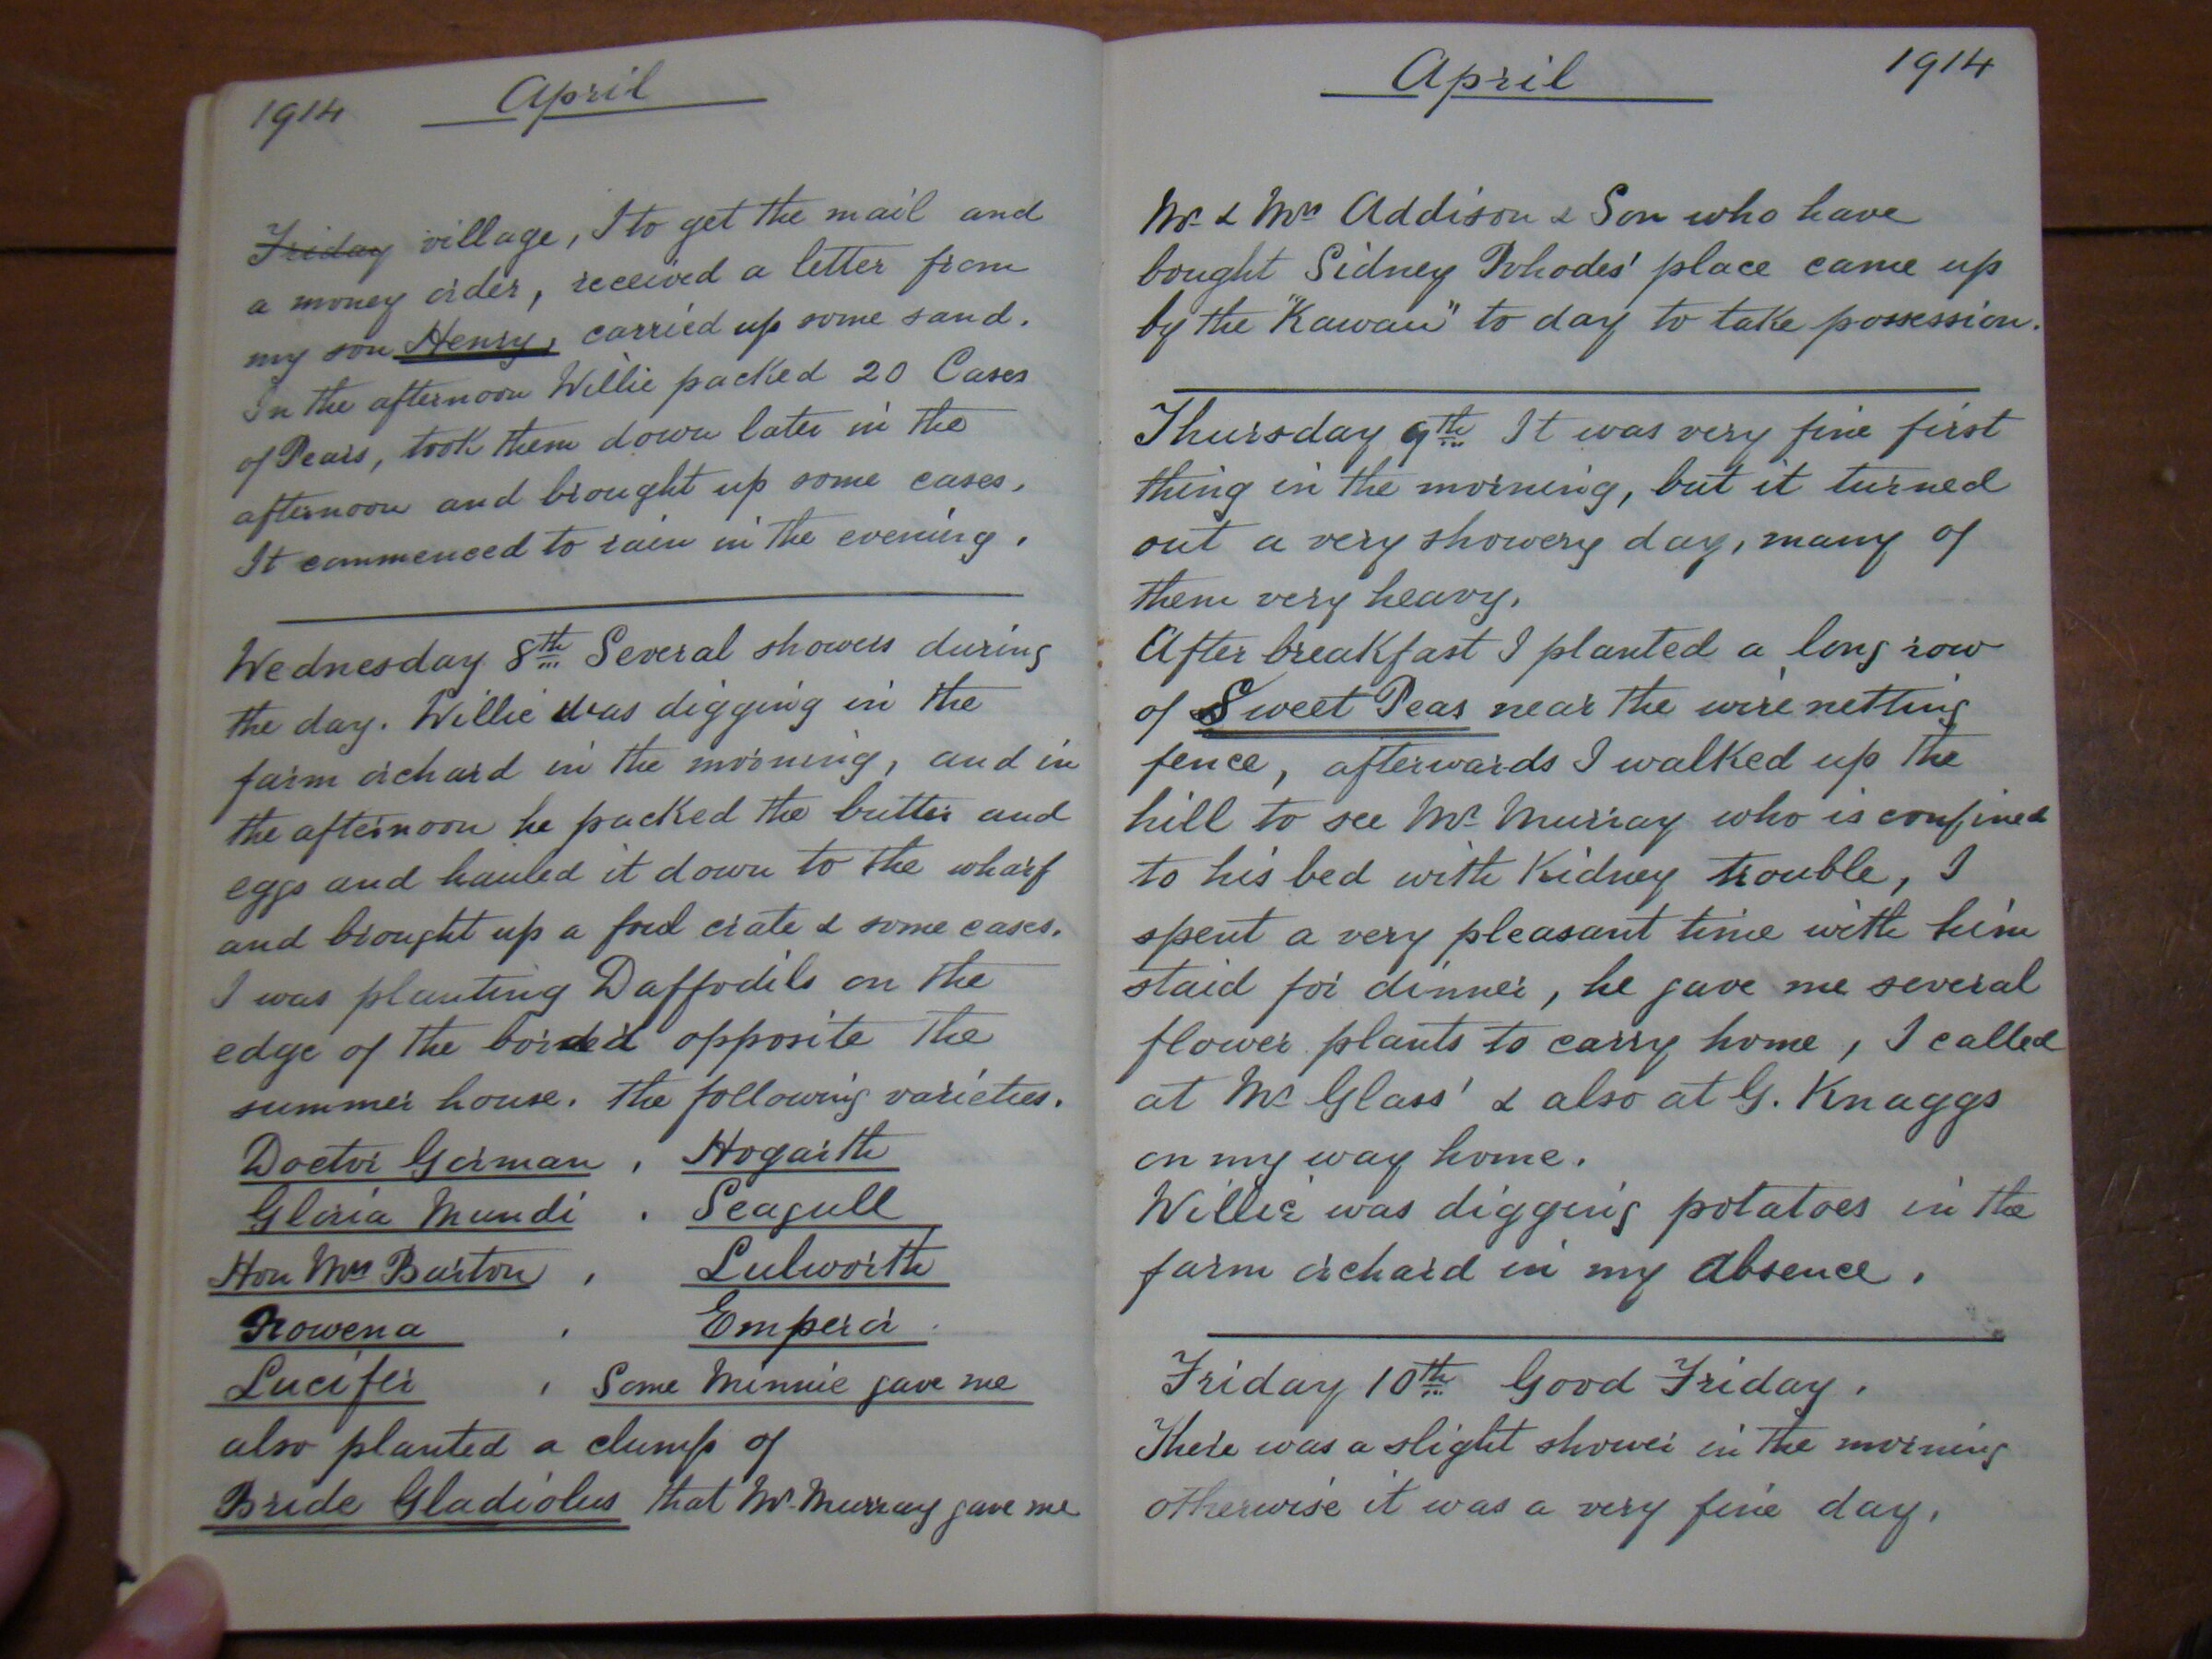 1914 April
Friday village, I to get the mail and
a money order, received a letter from
my son Henry, carried up some sand.
In the afternoon Willie packed 20 Cases
of Pears, took them down later in the
afternoon and brought up some cases.
It commenced to rain in the evening.
Wednesday 8th Several showers during
the day. Willie was digging in the
farm orchard in the morning, and in
the afternoon he packed the butter and
eggs and hauled it down to the wharf
and brought up a fowl crate & some cases.
I was planting Daffodils on the
edge of the border opposite the
summer house. the following varieties.
Doctor Gorman, Hogarth
Gloria Mundi. Seagull
Hon Mrs Barton, Lulworth
Rowena, Emperor.
Lucifer, Some Minnie gave me
also planted a clump of
Bride Gladiolus that Mr. Murray gave me
April 1914
Mr & Mrs Addison & Son who have
bought Sidney Rhodes' place came up
by the "Kawau" to day to take possession.
Thursday 9th It was very fine first
thing in the morning, but it turned
out a very showery day, many of
them very heavy.
After breakfast I planted a long row
of Sweet Peas near the wire netting
fence, afterwards I walked up the
hill to see Mr Murray who is confined
to his bed with Kidney trouble, I
spent a very pleasant time with him
staid for dinner, he gave me several
flower plants to carry home, I called
at Mr Glass' & also at G. Knaggs
on my way home.
Willie was digging potatoes in the
farm orchard in my absence.
Friday 10th Good Friday.
There was a slight shower in the morning
otherwise it was a very fine day.